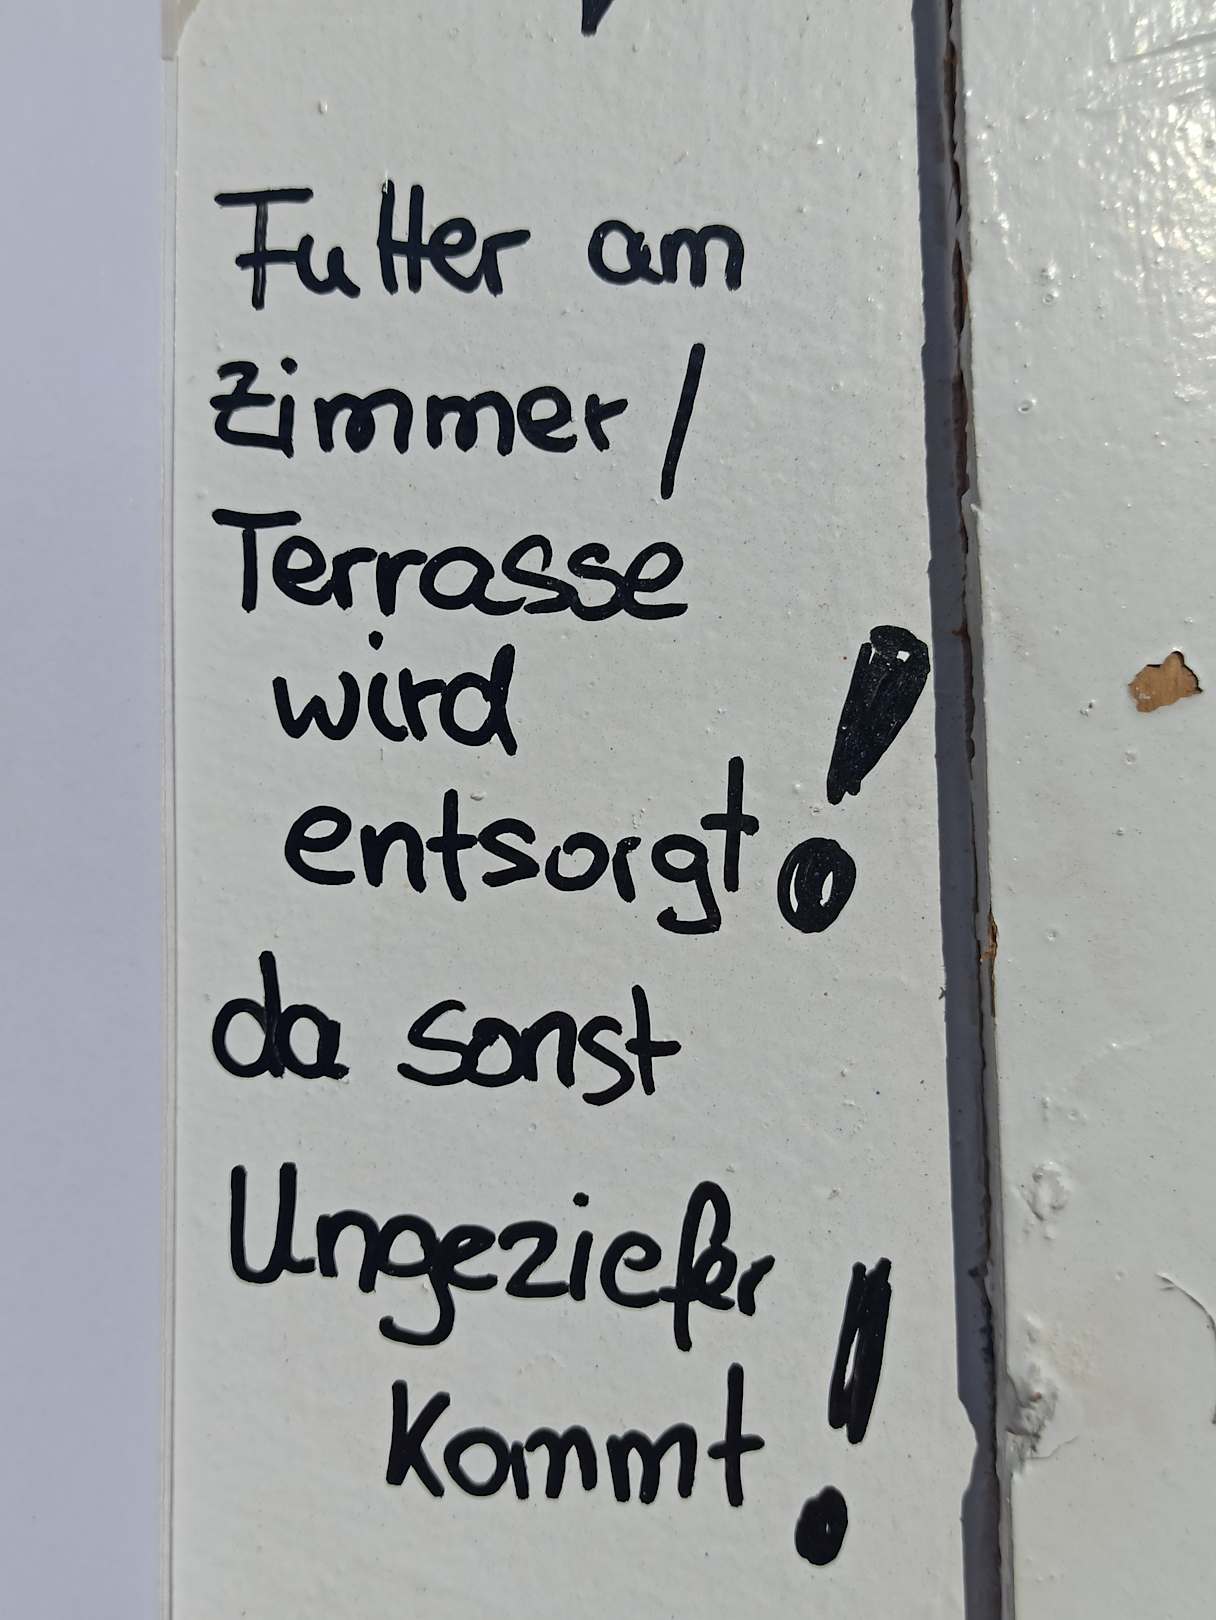 Futter am
Zimmer /
Terrasse
wird
entsorgt!
da sonst
Ungeziefer
Kommt!